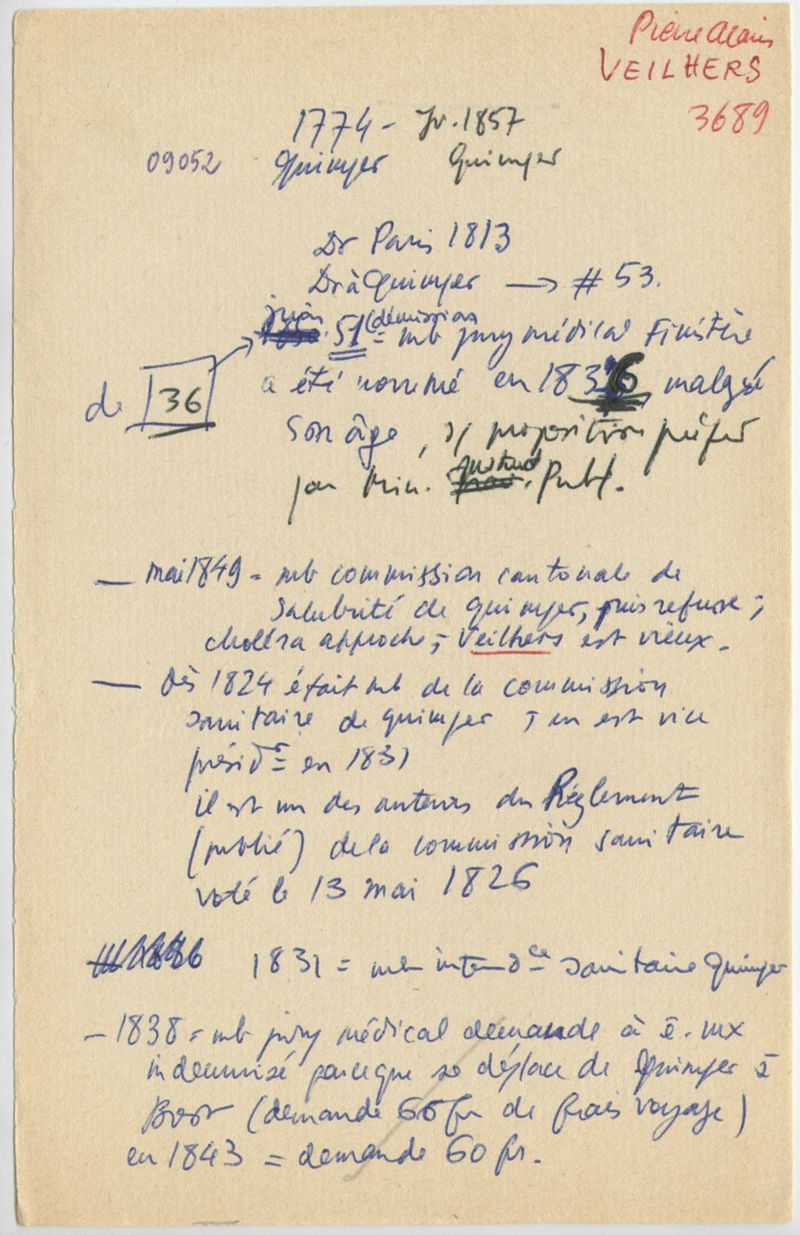 Pierre Alain
VEILHERS
3689
1774 - Jr. 1857
09052 Quimper Quimper
Dr Paris 1813
Dr à Quimper → # 53.
jusqu. 51 (démission) = mb jury médical Finistère
de 36
a été nommé en 1836 malgré
son âge, s/ proposition préfet
par Min. Publ.
— mai 1849 = mb commission cantonale de
salubrité de Quimper, puis refuse ;
choléra approche ; Veilhers est vieux.
— Dès 1824 était mb de la commission
sanitaire de Quimper ; en est vice
présidt = en 1831
il est un des auteurs du Règlement
(publié) de la commission sanitaire
voté le 13 mai 1826
1831 = mb intendce sanitaire Quimper
— 1838 = mb jury médical demande à ê. mx
indemnisé parce que se déplace de Quimper à
Brest (demande 65 fr de frais voyage)
en 1843 = demande 60 fr.